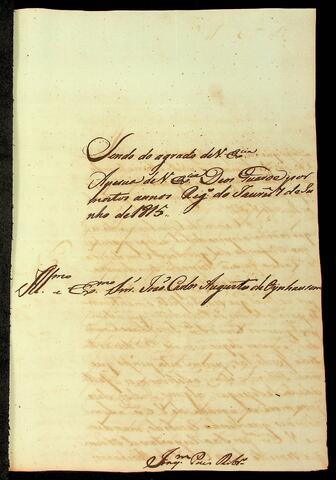 Sendo do agrado de V. Exa.
A pesoa de V. Exa. Deos Guarde por
muitos annos Rego. do 7 de Ju
nho de 1815.
Illmo. e Exmo. Snr. João Carlos Augusto de Oynhausen
Joaqm.